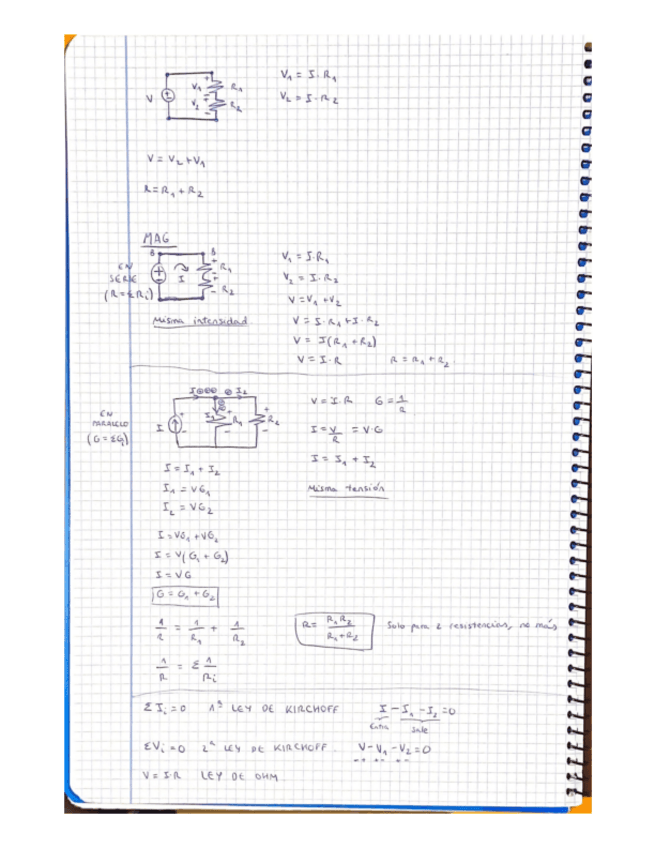 V₁ = I · R₁
V₂ = I · R₂
V
V₁
V₂
R₁
R₂
V = V₂ + V₁
R = R₁ + R₂
MAG
EN SERIE
(R = ΣRi)
I
R₁
R₂
Misma intensidad
V₁ = I · R₁
V₂ = I · R₂
V = V₁ + V₂
V = I · R₁ + I · R₂
V = I(R₁ + R₂)
V = I · R R = R₁ + R₂
EN PARALELO
(G = ΣGi)
I
I₂
I
I₁
R₁
R₂
V = I · R G = 1/R
I = V/R = V · G
I = I₁ + I₂
Misma tensión
I = I₁ + I₂
I₁ = VG₁
I₂ = VG₂
I = VG₁ + VG₂
I = V(G₁ + G₂)
I = VG
G = G₁ + G₂
1/R = 1/R₁ + 1/R₂
R = R₁R₂/R₁+R₂ Solo para 2 resistencias, no más
1/R = Σ 1/Ri
ΣIi = 0 1ª LEY DE KIRCHOFF I - I₁ - I₂ = 0
Entra Sale
ΣVi = 0 2ª LEY DE KIRCHOFF. V - V₁ - V₂ = 0
V = I · R LEY DE OHM